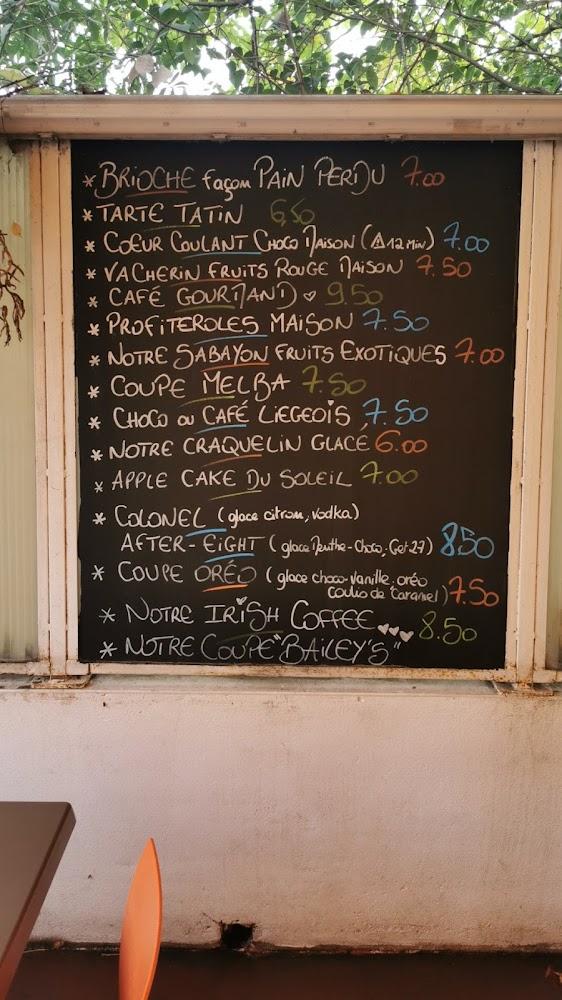 * BRIOCHE façon PAIN PERDU 7.00
* TARTE TATIN 6,50
* COEUR COULANT CHOCO MAISON (⚠12 MIN) 7.00
* VACHERIN FRUITS ROUGE MAISON 7.50
* CAFÉ GOURMAND ♡ 9.50
* PROFITEROLES MAISON 7.50
* NOTRE SABAYON FRUITS EXOTIQUES 7.00
* COUPE MELBA 7.50
* CHOCO OU CAFÉ LIEGEOIS 7.50
* NOTRE CRAQUELIN GLACÉ 6.00
* APPLE CAKE DU SOLEIL 7.00
* COLONEL (glace citron, vodka)
AFTER-EIGHT (glace Menthe-Choco, Get 27) 8.50
* COUPE ORÉO (glace choco-vanille, oréo
coulis de caramel) 7.50
* NOTRE IRISH COFFEE ♥♥♥ 8.50
* NOTRE COUPE "BAILEY'S"